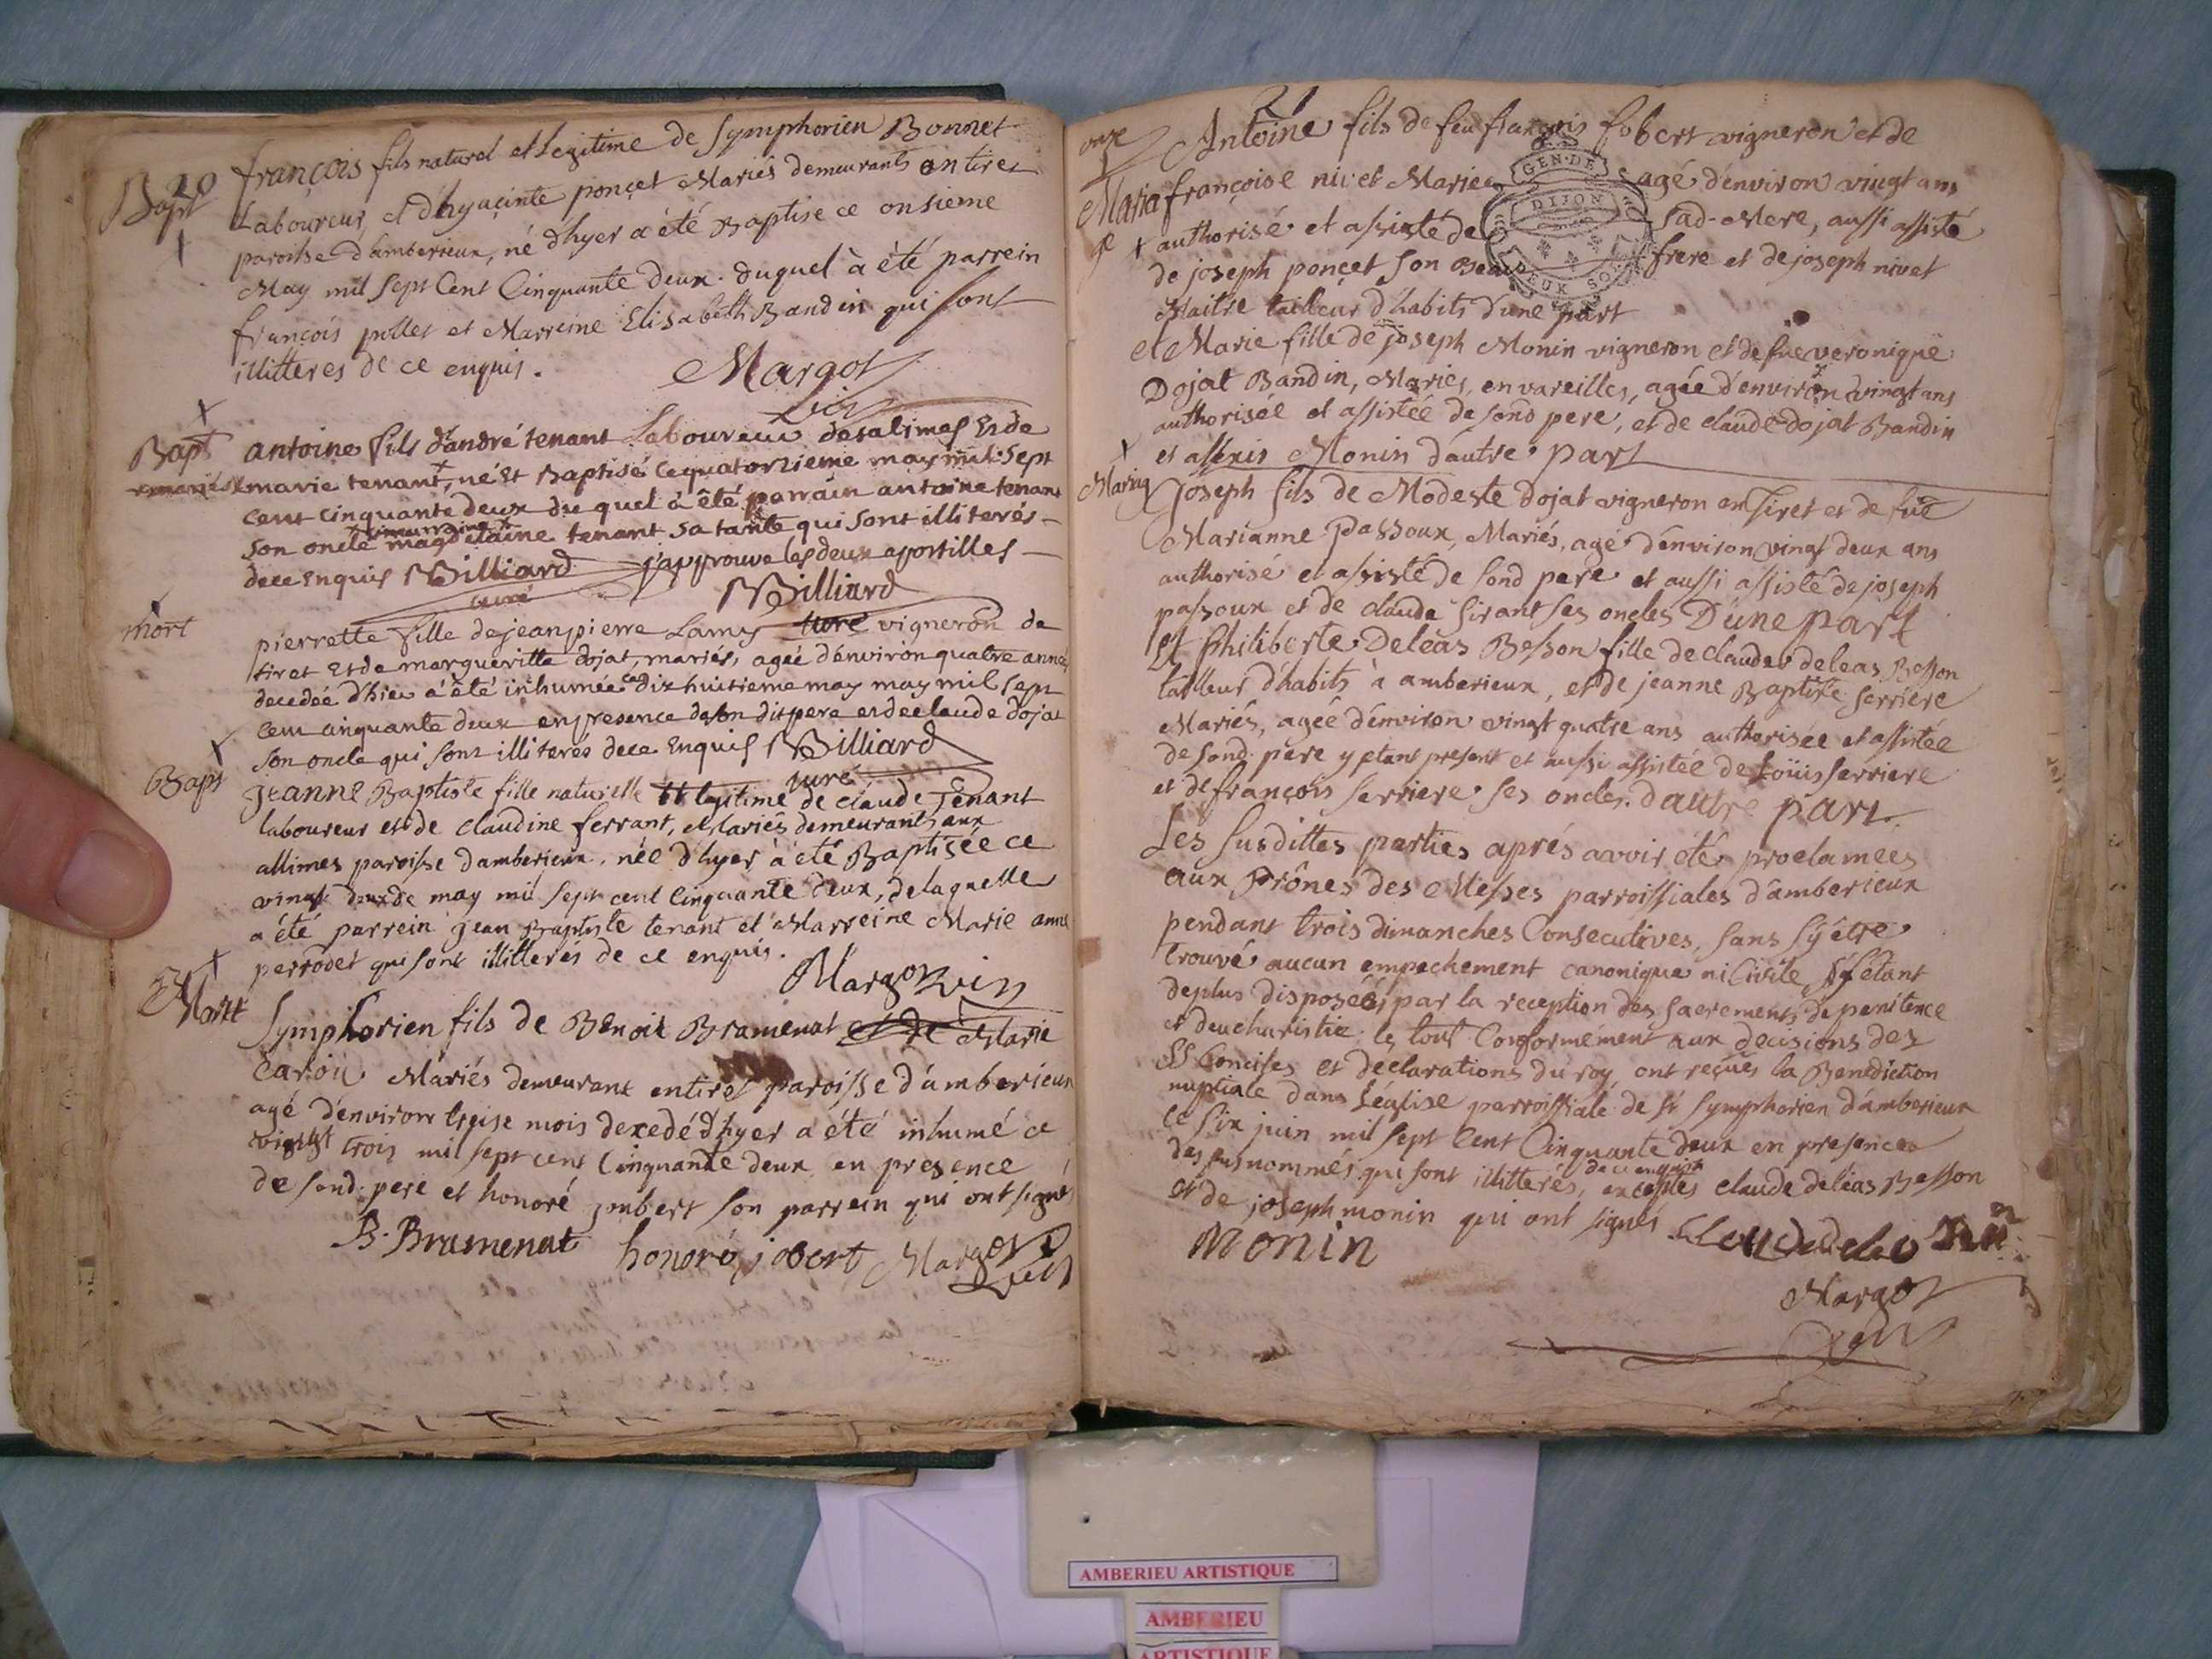 20
Bapt
françois fils naturel et Legitime de Symphorien Bonnet
Laboureur, et d'hyaçinte ponçet Mariés demeurants en tiret
paroisse d'amberieux, né d'hyer a été Baptise ce onsieme
May mil sept Cent Cinquante deux. duquel à été parrein
françois pollet et Marreine Elisabeth Bandin qui sont
illitteres de ce enquis. Margot
vic
Bapt
antoine fils d'andré tenant Laboureur desalimes Et de
marie tenant, né Et Baptisé ce quatorzieme may mil sept
cent cinquante deux du quel à été parrain antoine tenant
son oncle magdelaine tenant sa tante qui sont illiterés
dece Enquis Billiard j'approuve les deux apostilles
curé Billiard
mort
curé
pierrette fille de jean pierre Lamy vigneron de
tiret Et de margueritte dojat, mariés, agée d'environ quatre année
decedée d'hier a été inhumée ce dix huitieme may may mil sept
cent cinquante deux en presence de son dit pere et de claude dojat
son oncle qui sont illiterés dece Enquis Billiard
curé
Bapt
Jeanne Baptiste fille naturelle et legitime de claude Tenant
laboureur et de claudine ferrant, Mariés demeurants aux
allimes paroisse d'amberieux, née d'hyer a été Baptisée ce
vingt deux de may mil sept cent Cinquante deux, de laquelle
a été parrein jean Baptiste tenant et Marreine Marie anne
perrodet qui sont illitterés de ce enquis.
Margot vic
Mort
Symphorien fils de Benoit Bramenat et de Marie
Carou Mariés demeurant en tiret paroisse d'amberieux
agé d'environ treise mois decedé d'hyer a été inhumé ce
vingt trois mil sept cent Cinquante deux en presence
de sond. pere et honoré jobert son parrein qui ont signés
B. Bramenat honoré jobert Margot
vic
21
onze
Maria
ge
Antoine fils de feu françois Jobert vigneron et de
françoise nivet Mariés agé d'environ vingt ans
authorisé et assisté de sad. Mere, aussi assisté
de joseph ponçet son Beau frere et de joseph nivet
Maitre tailleur d'habits d'une part
GEN. DE
DIJON
DEUX SOLS
et Marie fille de joseph Monin vigneron et de fue veronique
Dojat Bandin, Mariés, en vareilles, agée d'environ vingt ans
authorisée et assistée de sond pere, et de claude dojat Bandin
et alexis Monin d'autre part
Mariag
Joseph fils de Modeste dojat vigneron en tiret et de fuë
Marianne Passoux, Mariés, agé d'environ vingt deux ans
authorisé et assisté de sond pere et aussi assisté de joseph
passoux et de claude sirant ses oncles D'une part
et Philiberte Deleas Besson fille de claude deleas Besson
tailleur d'habits à amberieux, et de jeanne Baptiste serriere
Mariés, agée d'environ vingt quatre ans authorisée et assistée
de sond. pere y etant present et aussi assistée de Loüis serriere
et de françois serriere ses oncles. d'autre part.
Les susdittes parties aprés avoir été proclamees
aux Prônes des Messes parroissiales d'amberieux
pendant trois dimanches Consecutives, sans s'y étre
trouvé aucun empechement canonique ni Civile s'étant
deplus disposées par la reception des sacrements de penitence
et d'eucharistie le tout Conformément aux decisions des
SS Conciles et declarations du roy ont reçues la Benediction
nuptiale dans L'église parroissiale de st symphorien d'amberieux
ce six juin mil sept Cent Cinquante deux en presence
de ce enquis
des susnommés qui sont illitterés, exceptés claude deleas Besson
et de joseph monin qui ont signés
Monin
Margot
vic
AMBERIEU ARTISTIQUE
AMBERIEU
ARTISTIQUE